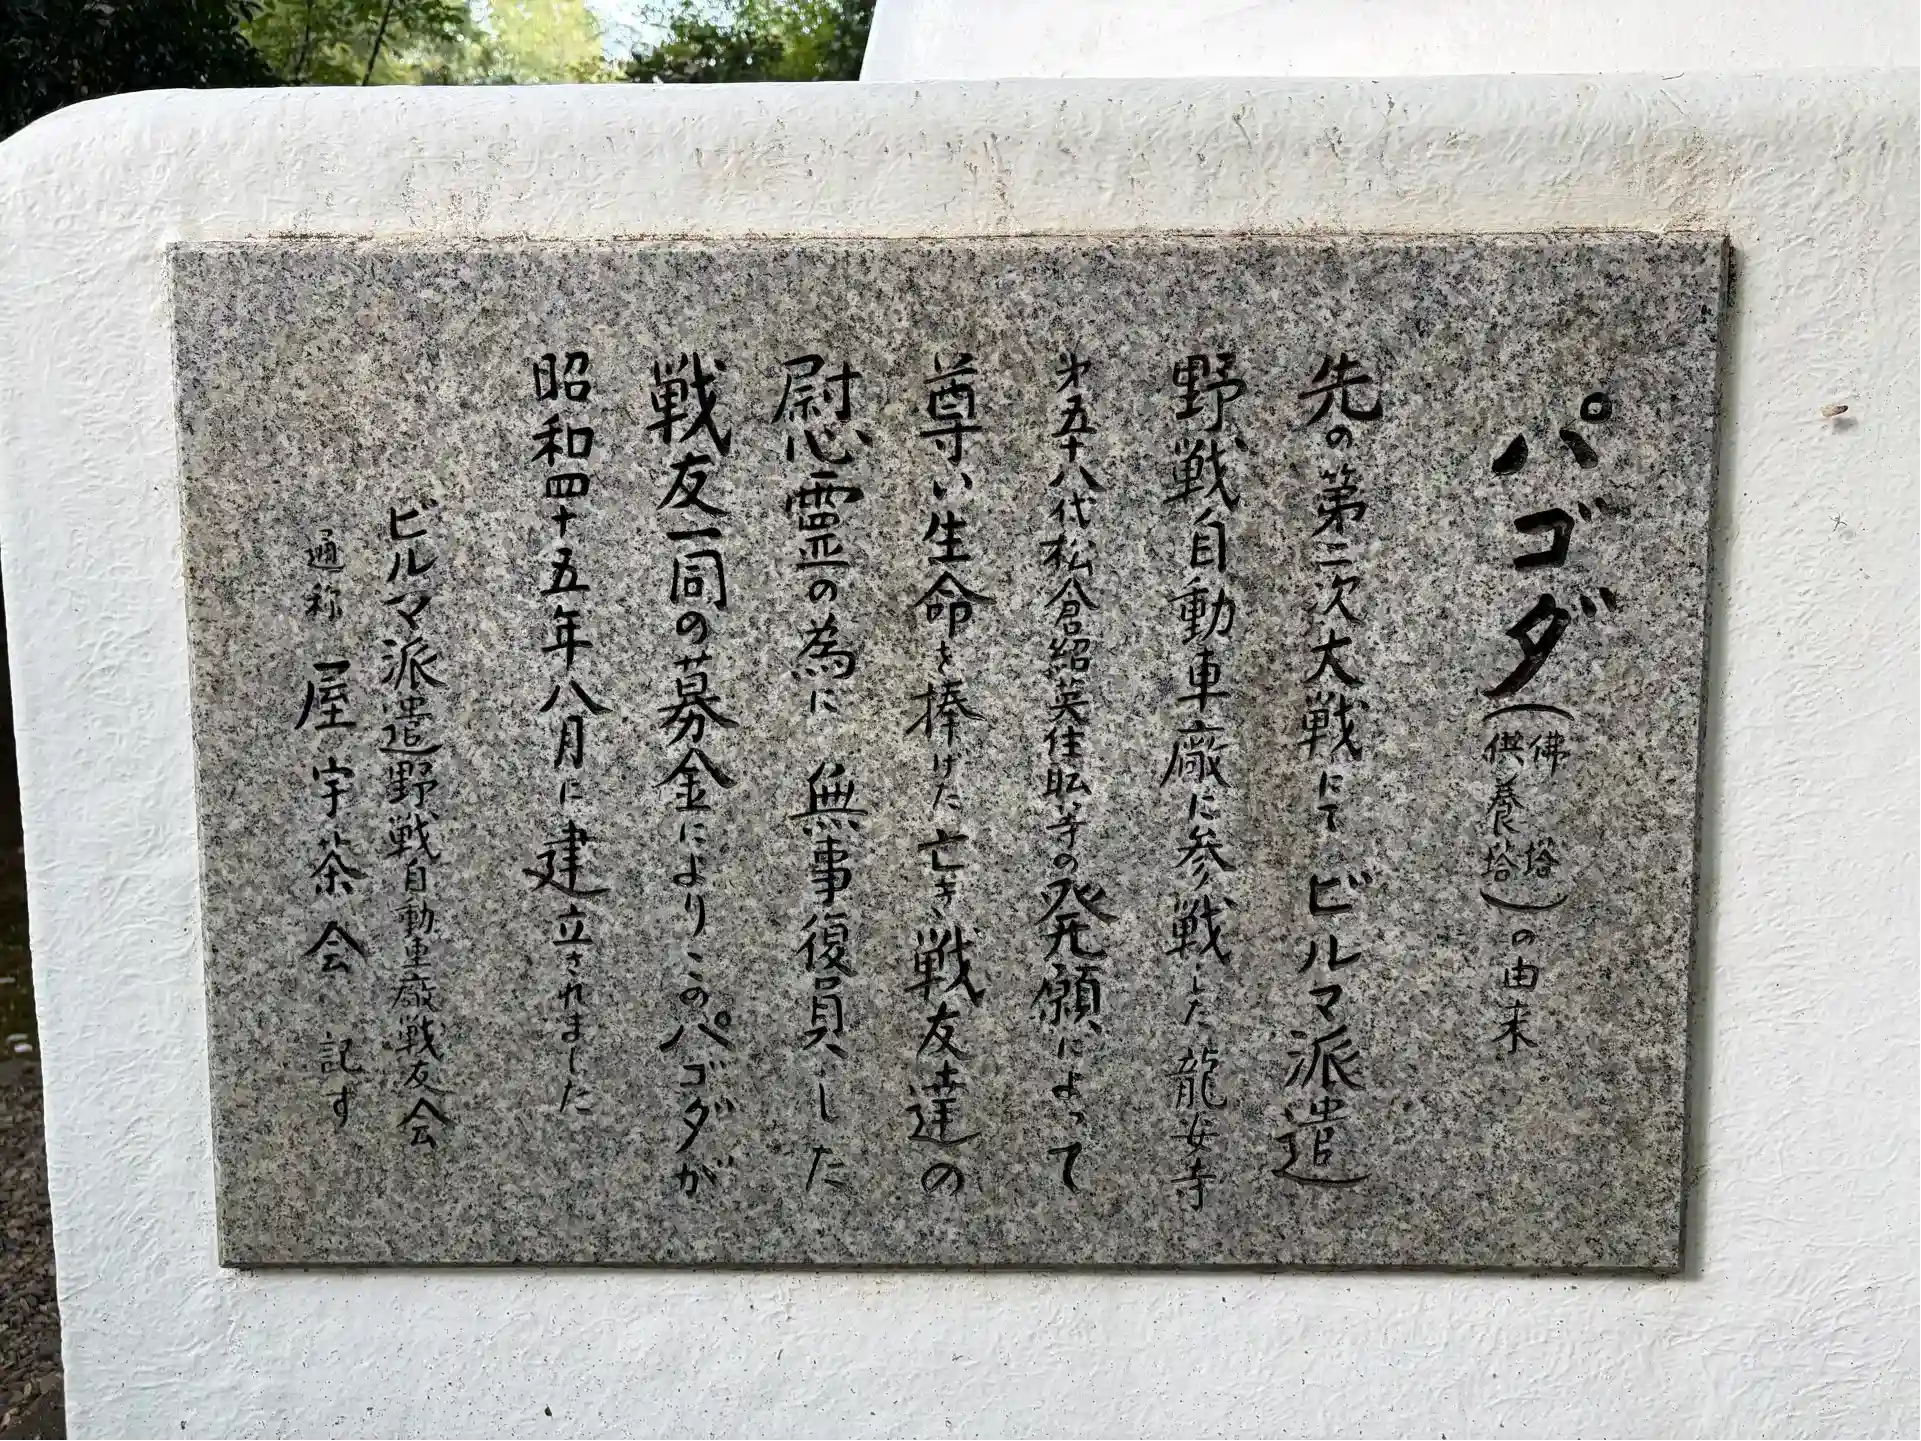 パゴダ(佛塔 供養塔)の由来
先の第二次大戦にてビルマ派遣
野戦自動車廠に参戦した龍安寺
第五十八代松倉紹英住職等の発願によって
尊い生命を捧げた亡き戦友達の
慰霊の為に 無事復員した
戦友一同の募金によりこのパゴダが
昭和四十五年八月に建立されました
ビルマ派遣野戦自動車廠戦友会
通称 一屋宇茶会 記す